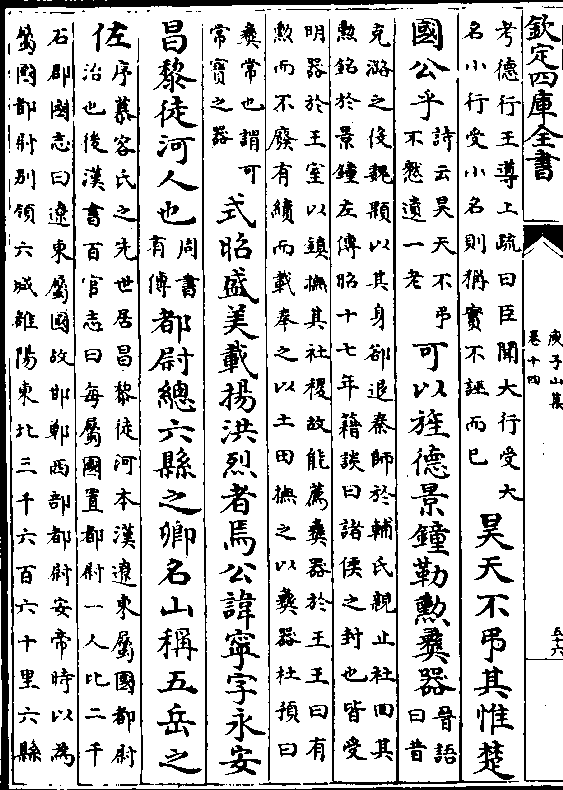 欽定四庫全書
庾子山集
卷十四
五六
考德行王導上疏曰臣聞大行受大
名小行受小名則猶實不誣而已
昊天不弔其惟楚
國公乎
詩云昊天不弔
不憖遺一老
可以旌德景鐘勒勲彝器
晉語
曰昔
克潞之後魏顆以其身郤退秦師於輔氏親止杜回其
勲銘於景鐘左傳昭十七年籍談曰諸侯之封也皆受
明器於王室以鎮撫其社稷故能薦彝器於王王曰有
勲而不廢有績而載奉之以土田撫之以彝器杜預曰
彝常也謂可
常寳之器
式昭盛美載揚洪烈者焉公諱寜字永安
昌黎徒河人也
周書
有傳
都尉總六縣之卿名山稱五岳之
佐
序慕容氏之先世居昌黎徒河本漢遼東屬國都尉
治也後漢書百官志曰每屬國置都尉一人比二千
石郡國志曰遼東屬國故邯鄲西部都尉安帝時以為
屬國都尉别領六城雒陽東北三千六百六十里六縣